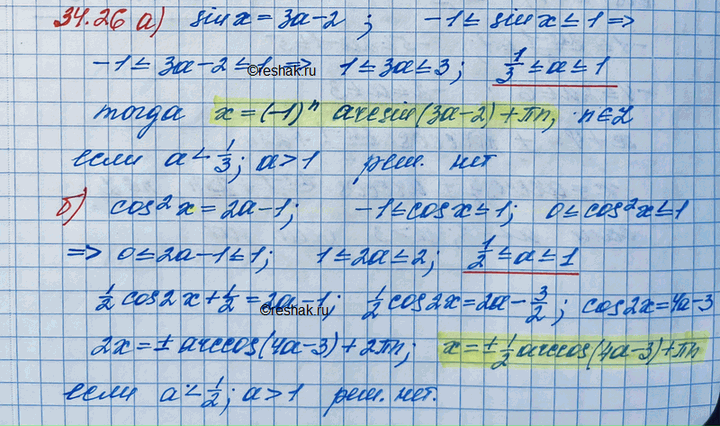 34.26 а) sin x = 3a-2 ; -1 ≤ sin x ≤ 1 =>
-1 ≤ 3a-2 ≤ 1 => 1 ≤ 3a ≤ 3; 1/3 ≤ a ≤ 1
©reshak.ru
тогда x = (-1)ⁿ arcsin(3a-2) + πn, n∈Z
если a < 1/3; a > 1 реш. нет
б) cos²x = 2a-1; -1 ≤ cos x ≤ 1; 0 ≤ cos²x ≤ 1
=> 0 ≤ 2a-1 ≤ 1; 1 ≤ 2a ≤ 2; 1/2 ≤ a ≤ 1
1/2 cos2x + 1/2 = 2a-1; 1/2 cos2x = 2a - 3/2; cos2x = 4a-3
©reshak.ru
2x = ± arccos(4a-3) + 2πn; x = ± 1/2 arccos(4a-3) + πn
если a < 1/2; a > 1 реш. нет.